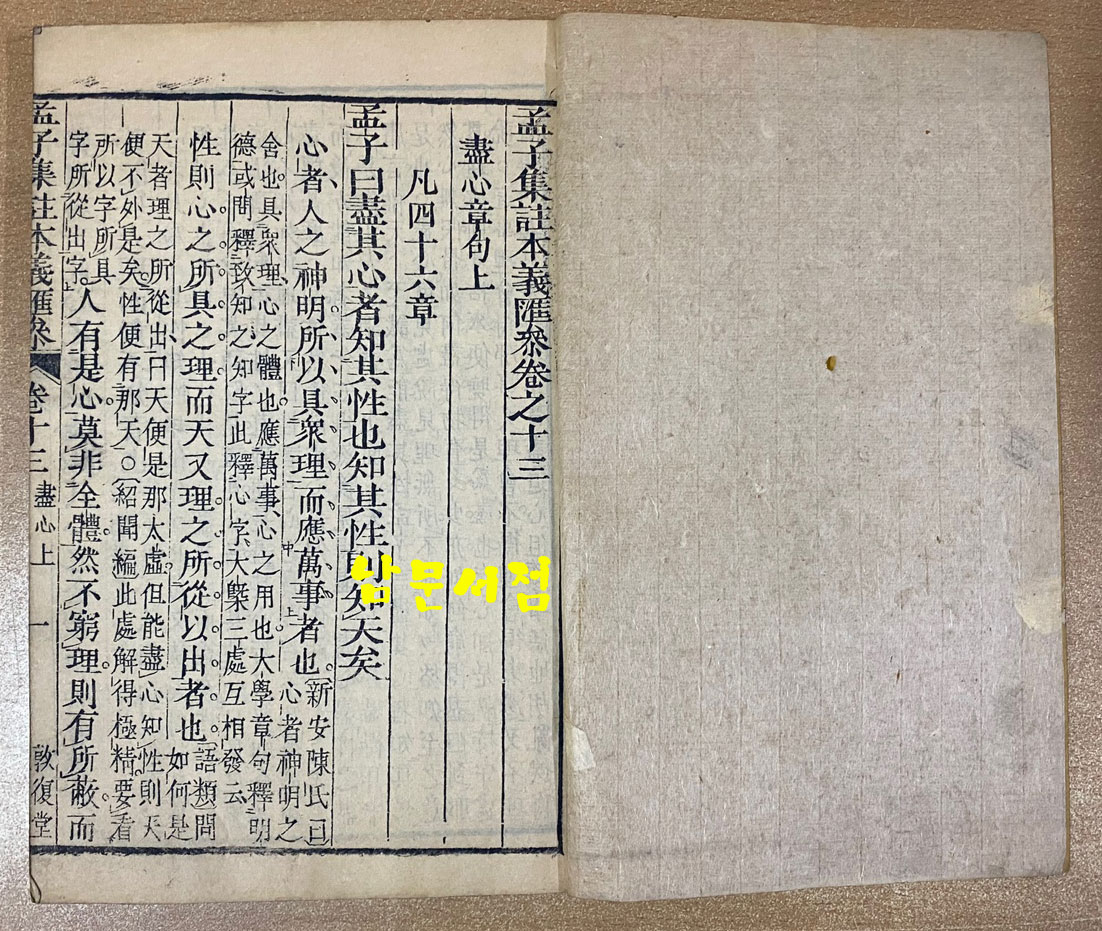 孟子集註本義匯參卷之十三
盡心章句上
凡四十六章
孟子曰盡其心者知其性也知其性則知天矣
心者人之神明所以具衆理而應萬事者也
新安陳氏曰
心者神明之
舍也具衆理心之體也應萬事心之用也大學章句釋明
德或問釋致知之知字此釋心字大槩三處互相發云
性則心之所具之理而天又理之所從以出者也
語類問
如何是
天者理之所從出曰天便是那太虛但能盡心知性則天
便不外是矣性便有那天○紹聞編此處解得極精要看
所以字所具
字所從出字
人有是心莫非全體然不窮理則有所蔽而
孟子集註本義匯參 卷十三 盡心上 一 敦復堂
남문서점